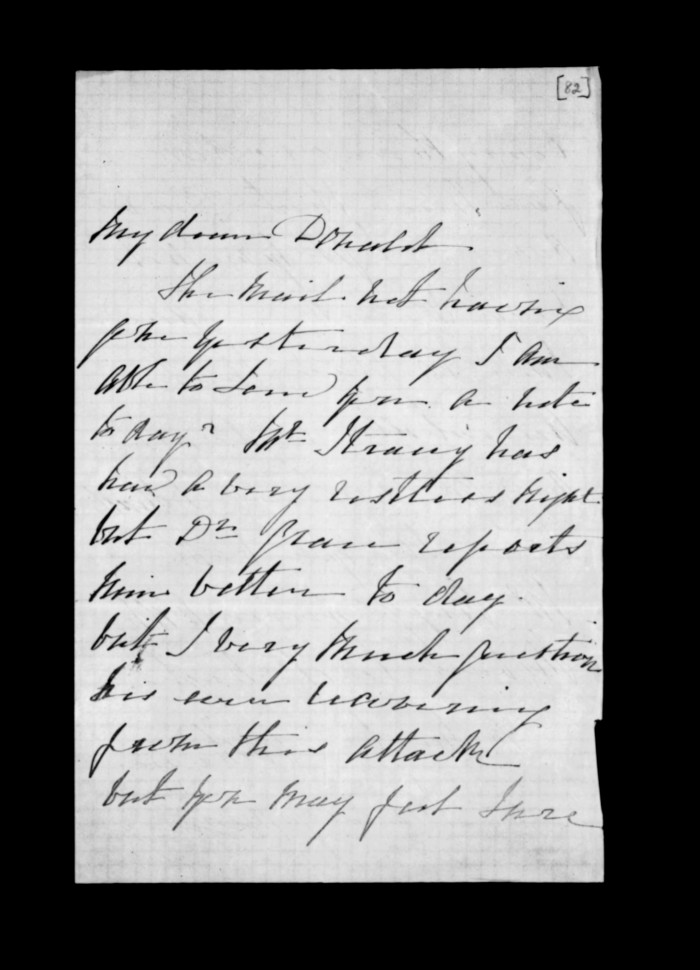 [82]
My dear Donald
The Mail not having
gone yesterday I am
able to send you a note
to day Mr Strang has
had a very restless night
but Dr Grace reports
him better to day
but I very much question
his ever recovering
from this attack
but you may feel sure